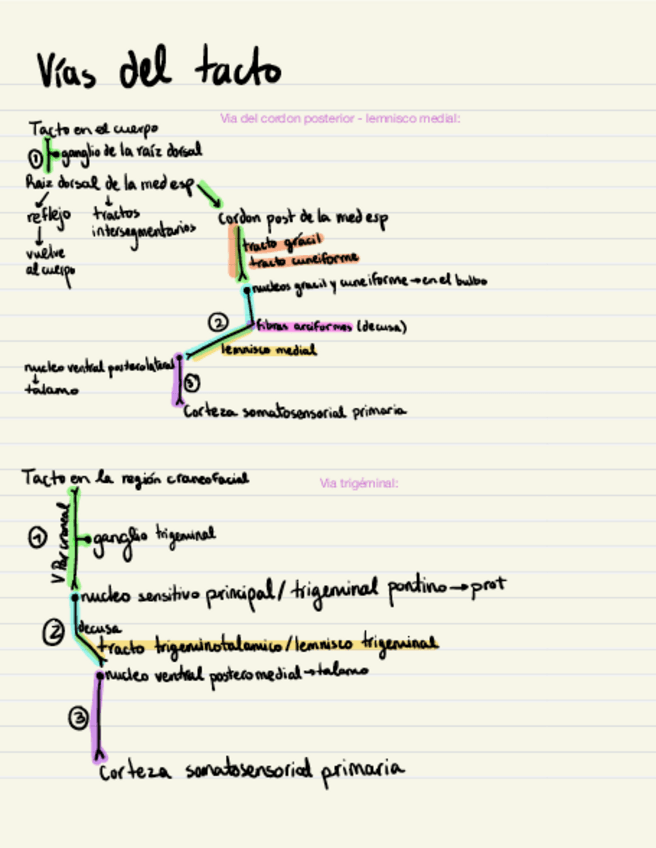 Vías del tacto
Via del cordon posterior - lemnisco medial:
Tacto en el cuerpo
① ganglio de la raíz dorsal
Raiz dorsal de la med esp
reflejo
vuelve
al cuerpo
tractos
intersegmentarios
Cordon post de la med esp
tracto grácil
tracto cuneiforme
nucleos gracil y cuneiforme → en el bulbo
② fibras arciformes (decusa)
lemnisco medial
nucleo ventral posterolateral
talamo
③
Corteza somatosensorial primaria
Tacto en la región craneofacial
Via trigéminal:
① V Par craneal
ganglio trigeminal
nucleo sensitivo principal/ trigeminal pontino → prot
② decusa
tracto trigeminotalamico/lemnisco trigeminal
nucleo ventral posteromedial → talamo
③
Corteza somatosensorial primaria